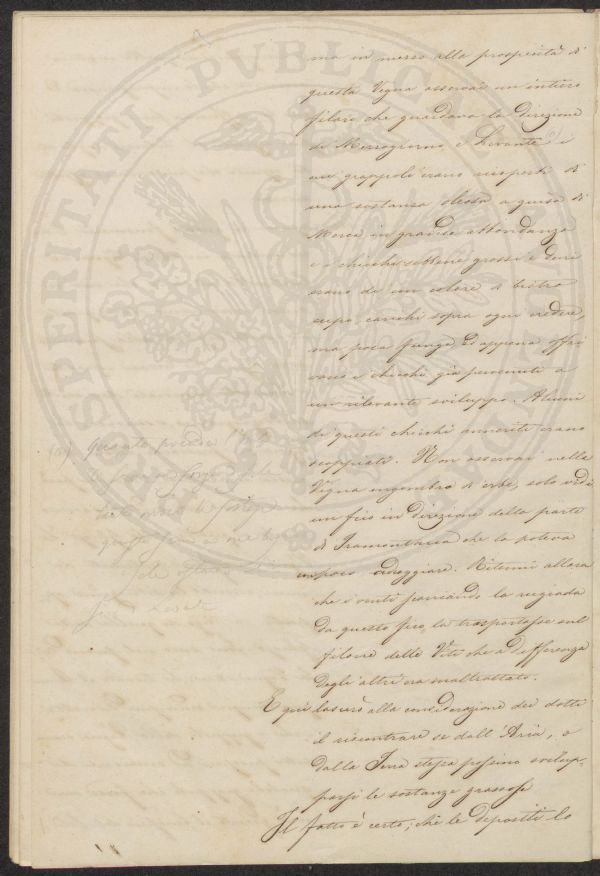 PROSPERITATI PUBLICAE AUGENDAE
ma in mezzo alla prosperità di
questa Vigna osservai un intiero
filare che guardava la direzione
di Mezzogiorno e Levante i
cui grappoli erano aspersi di
una sostanza oleosa a guisa di
Morca in grande abbondanza
e i chicchi sebbene grossi e duri
erano di un colore di bistro
cupo, carichi sopra ogni credere
ma poca funga ed appena offri
vano i chicchi già pervenuti a
un rilevante sviluppo. Alcuni
di questi chicchi anneriti erano
scoppiati. Non osservai nella
Vigna ingombro di erbe, solo vidi
un fico in direzione della parte
di Tramontana che la poteva
un poco aduggiare. Ritenni allora
che i venti passando la rugiada
da questo fico, la trasportasse sul
filare delle Viti che a differenza
degli altri era maltrattato.
E qui lascerò alla considerazione dei dotti
il riscontrare se dall'Aria, o
dalla Terra stessa possino svilup-
parsi le sostanze grassose
Il fatto è certo; che le depositi lo
quanto precede
questo